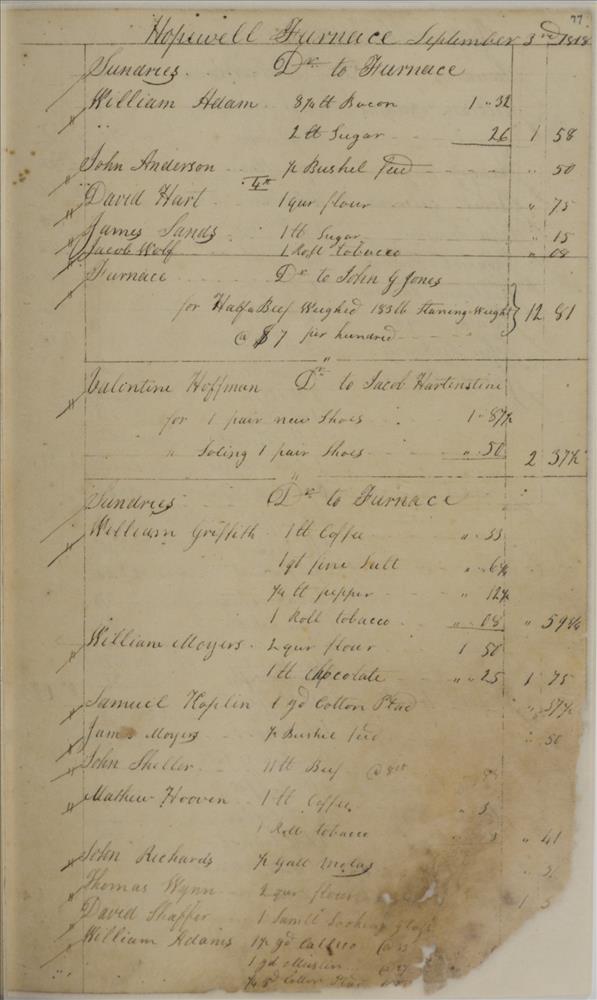 77
Hopewell Furnace September 3rd 1818
Sundries Dr. to Furnace
William Adam 8¼ lb Bacon 1 " 32
" 2 lb Sugar 26 1 58
John Anderson ½ Bushel feed " 50
4th
David Hart 1 qur flour " 75
James Sands 1 lb Sugar " 15
Jacob Wolf 1 Roll tobacco " 08
Furnace Dr. to John G Jones
for Half a Beef Weighed 183 lb Weight 12 81
@ $7 per hundred
Valentine Hoffman Dr. to Jacob Hartenstine
for 1 pair new Shoes 1 " 87½
" Soling 1 pair Shoes " 50 2 37½
Sundries Dr. to Furnace
William Griffith 1 lb Coffee " 33
1 qt fine Salt " 6¼
¼ lb pepper " 12½
1 Roll tobacco " 08 " 59¾
William Moyers 2 qur flour 1 50
1 lb Chocolate " " 25 1 75
Samuel Koplin 1 yd Cotton Plad " 37½
James Moyers ½ Bushel feed " 50
John Sheller 11 lb Beef @ 8
Mathew Hooven 1 lb Coffee
1 Roll tobacco " 41
John Richards ½ gall molas
Thomas Wynn 2 qur flour 1 5
David Shaffer 1 Small Looking glass
William Adams 1½ yd Callico
1 yd Muslin
yd Cotton Plad